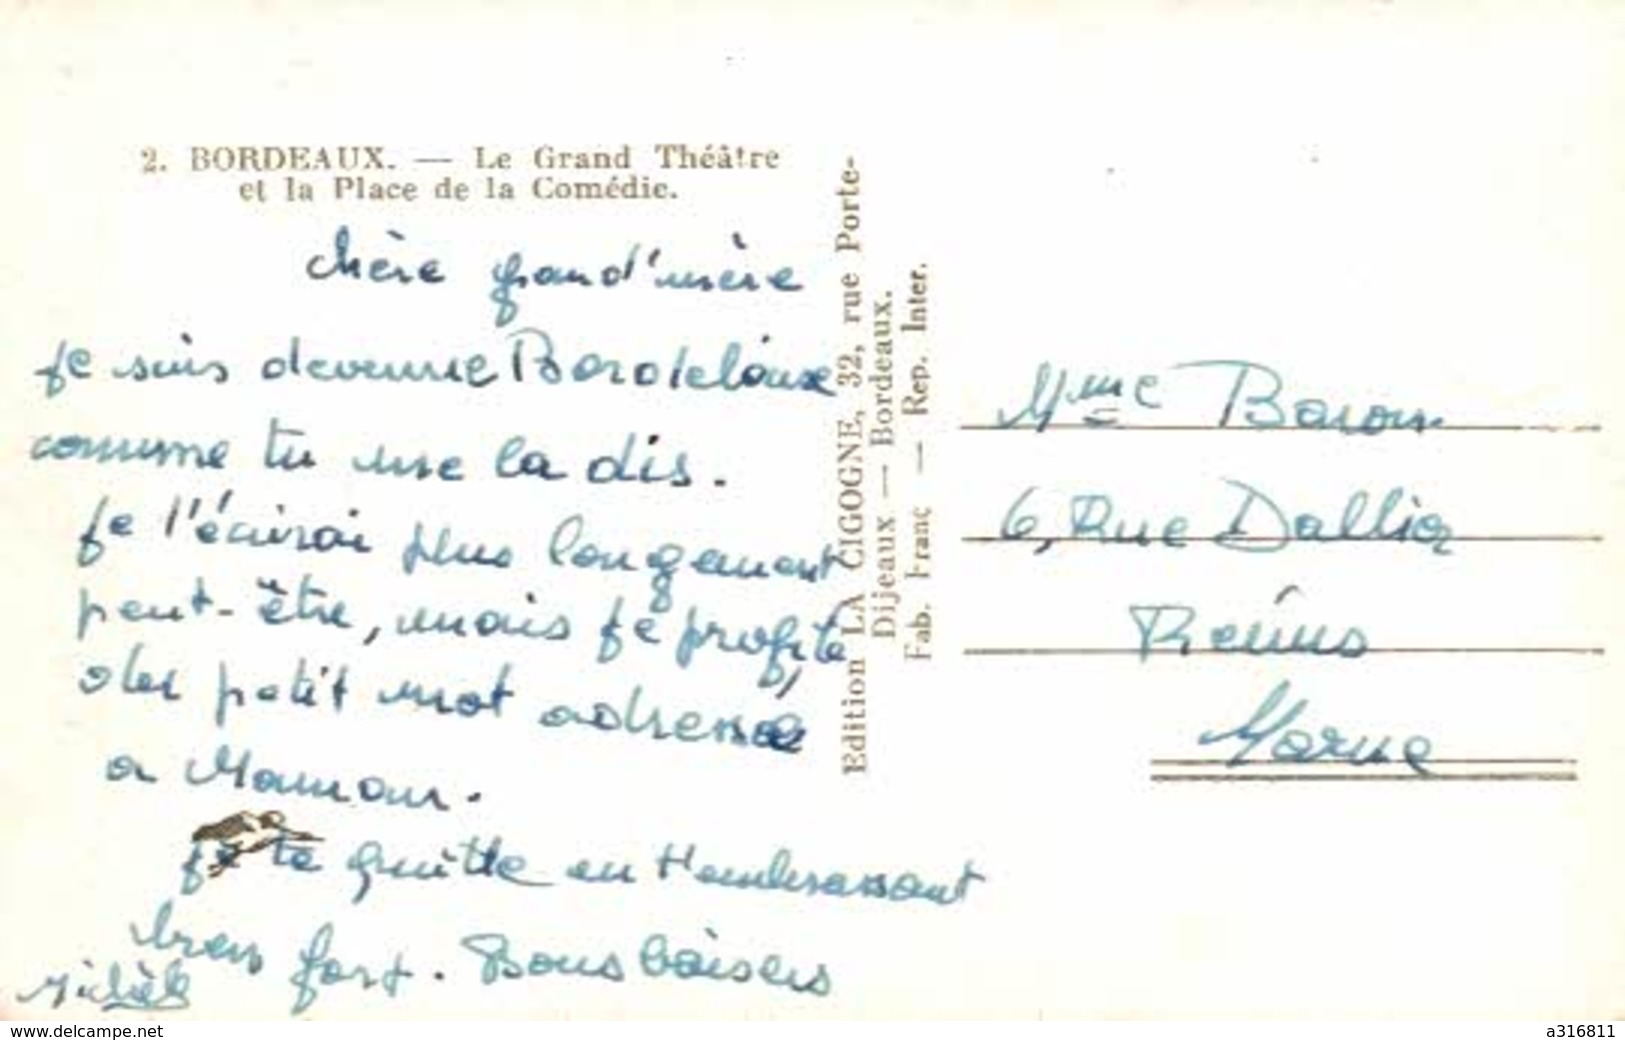 2. BORDEAUX. — Le Grand Théâtre
et la Place de la Comédie.
chère grand'mère
je suis devenue Bordelaise
comme tu me la dis.
je t'écrirai plus longement
peut-être, mais je profite
des petit mot adressée
a Maman.
je te quitte en t'embrassant
bien fort. Bons baisers
Michèle
Edition LA CIGOGNE, 32, rue Porte-
Dijeaux — Bordeaux.
Fab. Franç — Rep. Inter.
Mme Baron
6, Rue Dallier
Reims
Marne
www.delcampe.net
a316811